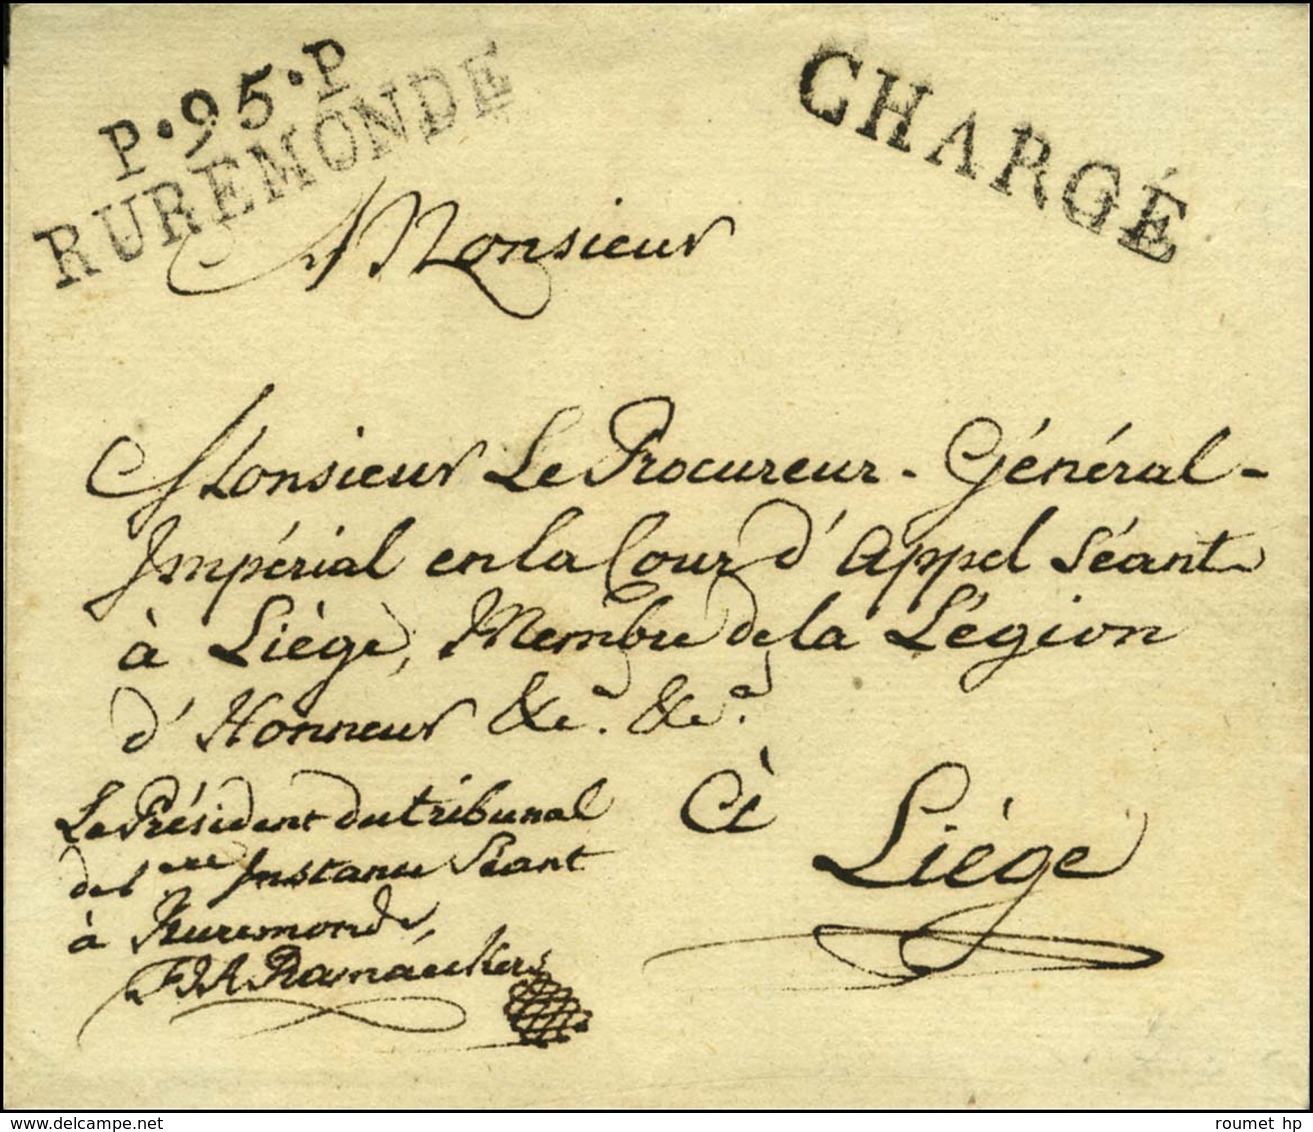 P·95·P
RUREMONDE
CHARGÉ
Monsieur
Monsieur Le Procureur-Général-
Impérial en la Cour d'Appel Séant
à Liége, Membre de la Légion
d'Honneur &c.a &c.a
À
Liége
Le Président du tribunal
de 1ere Instance Séant
à Ruremonde,
roumet hp